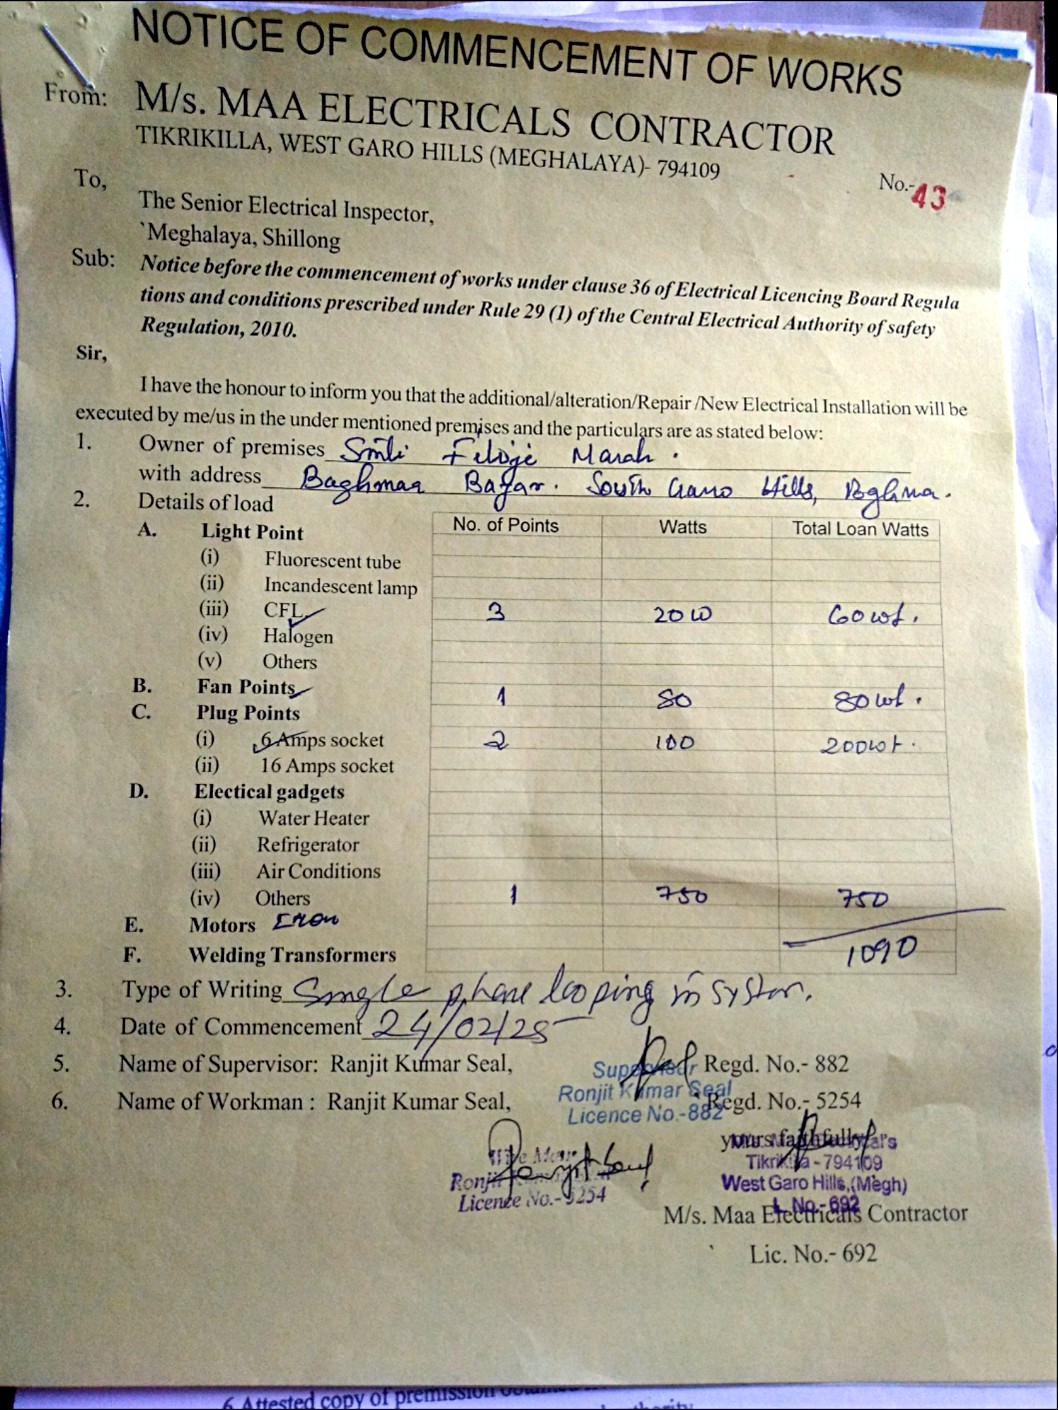 NOTICE OF COMMENCEMENT OF WORKS
From: M/s. MAA ELECTRICALS CONTRACTOR
TIKRIKILLA, WEST GARO HILLS (MEGHALAYA)- 794109
To, No.-43
The Senior Electrical Inspector,
`Meghalaya, Shillong
Sub: Notice before the commencement of works under clause 36 of Electrical Licencing Board Regula
tions and conditions prescribed under Rule 29 (1) of the Central Electrical Authority of safety
Regulation, 2010.
Sir,
I have the honour to inform you that the additional/alteration/Repair /New Electrical Installation will be
executed by me/us in the under mentioned premises and the particulars are as stated below:
1. Owner of premises Smti Marak.
with address Baghmaa Bazar. South Garo Hills,
2. Details of load No. of Points Watts Total Loan Watts
A. Light Point
(i) Fluorescent tube
(ii) Incandescent lamp
(iii) CFL 3 20 W 60 wt.
(iv) Halogen
(v) Others
B. Fan Points 1 80 80 wt.
C. Plug Points
(i) 6 Amps socket 2 100 200wt.
(ii) 16 Amps socket
D. Electical gadgets
(i) Water Heater
(ii) Refrigerator
(iii) Air Conditions
(iv) Others 1 750 750
E. Motors
F. Welding Transformers 1090
3. Type of Writing Single phase looping in system.
4. Date of Commencement 24/02/25
5. Name of Supervisor: Ranjit Kumar Seal, Regd. No.- 882
Supervisor
Ronjit Kumar Seal
Licence No.-882
6. Name of Workman : Ranjit Kumar Seal, Regd. No.- 5254
yours faithfully
Wire Man
Tikrikilla - 794109
Ronjit
West Garo Hills,(Megh)
Licence No.- 5254
L. No.- 692
M/s. Maa Electricals Contractor
Lic. No.- 692
6 Attested copy of premission